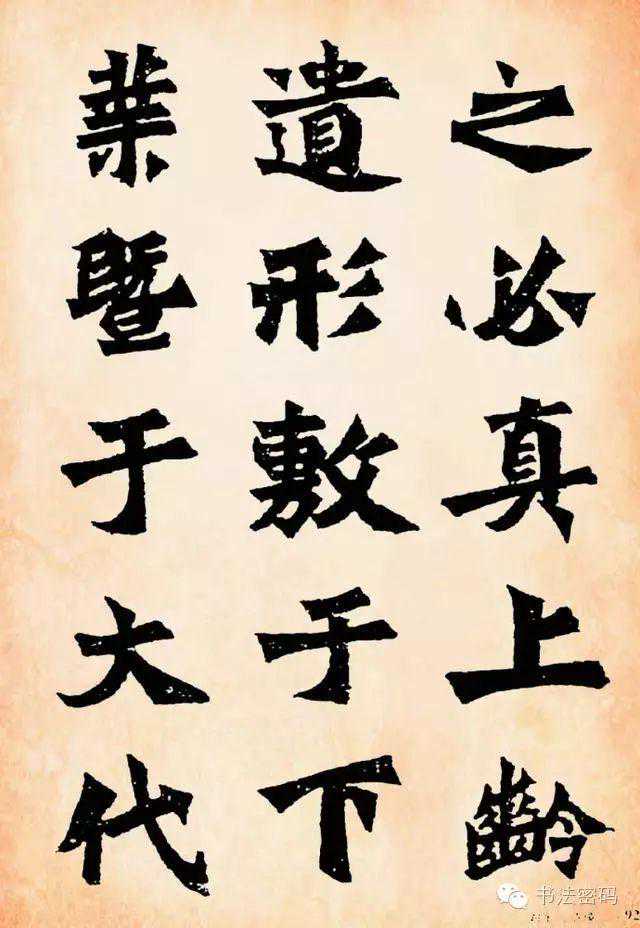 之必真上齡
遺形敷于下
葉暨于大代
书法密码
92